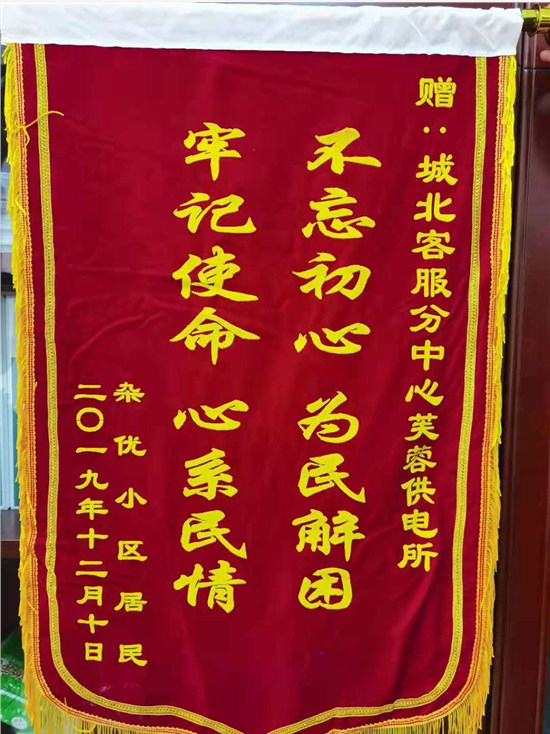 赠：城北客服分中心芙蓉供电所
不忘初心 为民解困
牢记使命 心系民情
杂优小区居民
二〇一九年十二月十日